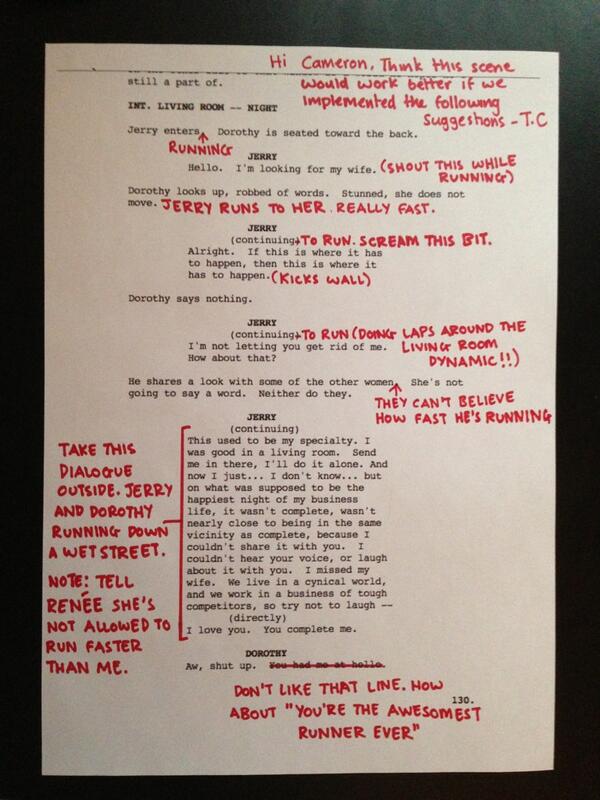 Hi Cameron, Think this scene
would work better if we
implemented the following
suggestions - T.C
still a part of.
INT. LIVING ROOM -- NIGHT
Jerry enters. Dorothy is seated toward the back.
RUNNING
JERRY
Hello. I'm looking for my wife. (SHOUT THIS WHILE
RUNNING)
Dorothy looks up, robbed of words. Stunned, she does not
move. JERRY RUNS TO HER. REALLY FAST.
JERRY
(continuing) TO RUN. SCREAM THIS BIT.
Alright. If this is where it has
to happen, then this is where it
has to happen. (KICKS WALL)
Dorothy says nothing.
JERRY
(continuing) TO RUN (DOING LAPS AROUND THE
I'm not letting you get rid of me. LIVING ROOM
How about that? DYNAMIC!!)
He shares a look with some of the other women. She's not
going to say a word. Neither do they.
THEY CAN'T BELIEVE
HOW FAST HE'S RUNNING
JERRY
(continuing)
This used to be my specialty. I
was good in a living room. Send
me in there, I'll do it alone. And
now I just... I don't know... but
on what was supposed to be the
happiest night of my business
life, it wasn't complete, wasn't
nearly close to being in the same
vicinity as complete, because I
couldn't share it with you. I
couldn't hear your voice, or laugh
about it with you. I missed my
wife. We live in a cynical world,
and we work in a business of tough
competitors, so try not to laugh --
(directly)
I love you. You complete me.
TAKE THIS
DIALOGUE
OUTSIDE. JERRY
AND DOROTHY
RUNNING DOWN
A WET STREET.
NOTE: TELL
RENÉE SHE'S
NOT ALLOWED TO
RUN FASTER
THAN ME.
DOROTHY
Aw, shut up. You had me at hello.
DON'T LIKE THAT LINE. HOW
ABOUT "YOU'RE THE AWESOMEST
RUNNER EVER"
130.